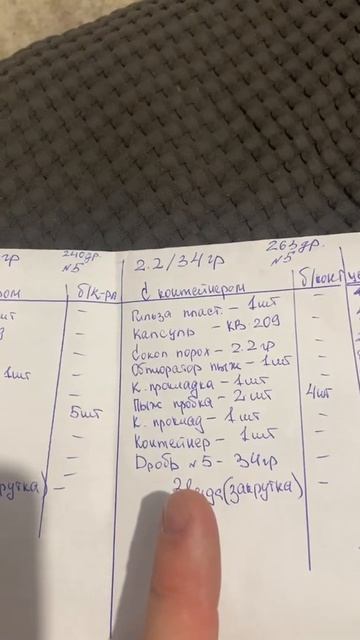 гр 240др. №5
2.2/34гр 263др. №5
ром б/к-ра
С контейнером б/конт
Гильза пласт. - 1шт -
Капсуль - КВ 209 -
Сокол порох - 2.2гр -
Обтюратор пыж - 1шт -
1шт -
К. прокладка - 1шт -
Пыж пробка - 2шт 4шт
5шт
К. проклад - 1шт -
Контейнер - 1шт -
Дробь №5 - 34гр -
рутка) -
(закрутка) -